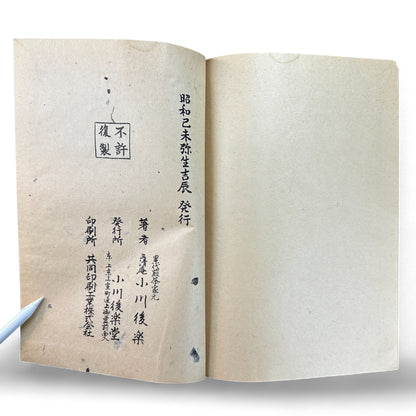 昭和己未弥生吉辰 発行
不許
復製
六代煎茶家元
著者 小川後楽
発行所 小川後楽堂
印刷所 共同印刷工業株式会社